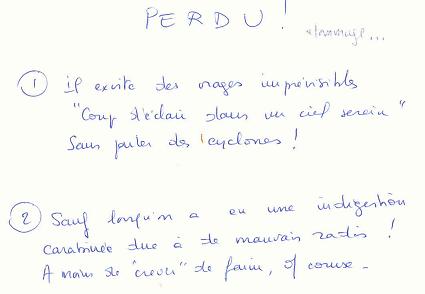 PERDU !
dommage...
① il existe des orages imprévisibles
"Coup d'éclair dans un ciel serein"
Sans parler des cyclones !
② Sauf lorsqu'on a eu une indigestion
carabinée due à de mauvais radis !
A moins de "crever" de faim, of course -